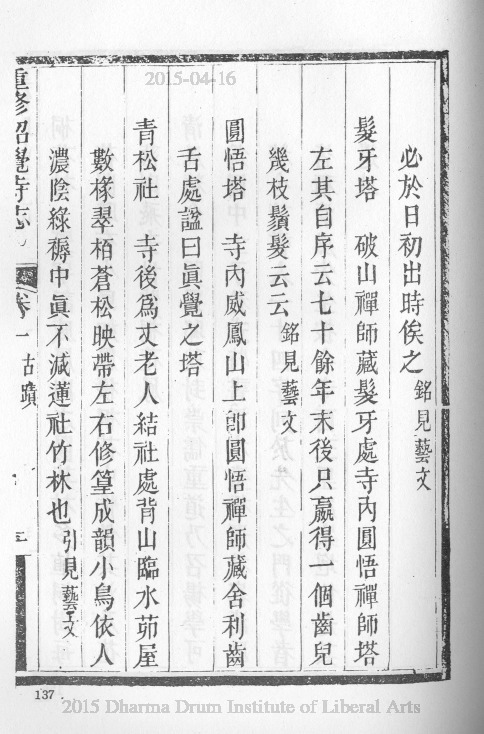 2015-04-16
必於日初出時俟之 銘見藝文
髮牙塔 破山禪師藏髮牙處寺內圓悟禪師塔
左其自序云七十餘年末後只贏得一個齒兒
幾枝鬚髮云云 銘見藝文
圓悟塔 寺內威鳳山上卽圓悟禪師藏舍利齒
舌處諡曰眞覺之塔
青松社 寺後爲丈老人結社處背山臨水茆屋
數椽翠栢蒼松映帶左右修篁成韻小鳥依人
濃陰綠褥中眞不減蓮社竹林也 引見藝文
重修昭覺寺志 卷一 古蹟
137
2015 Dharma Drum Institute of Liberal Arts